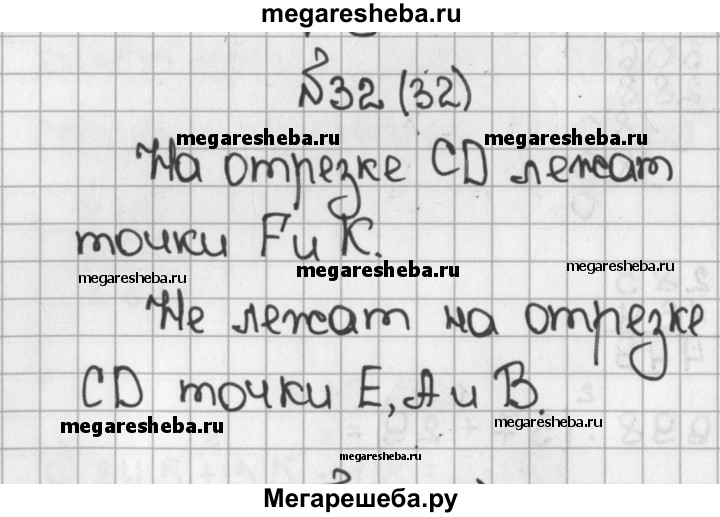 megaresheba.ru
№32 (32)
megaresheba.ru megaresheba.ru
На отрезке CD лежат
точки F и K.
megaresheba.ru megaresheba.ru megaresheba.ru
Не лежат на отрезке
CD точки E, A и B.
megaresheba.ru megaresheba.ru
megaresheba.ru
Мегарешеба.ру